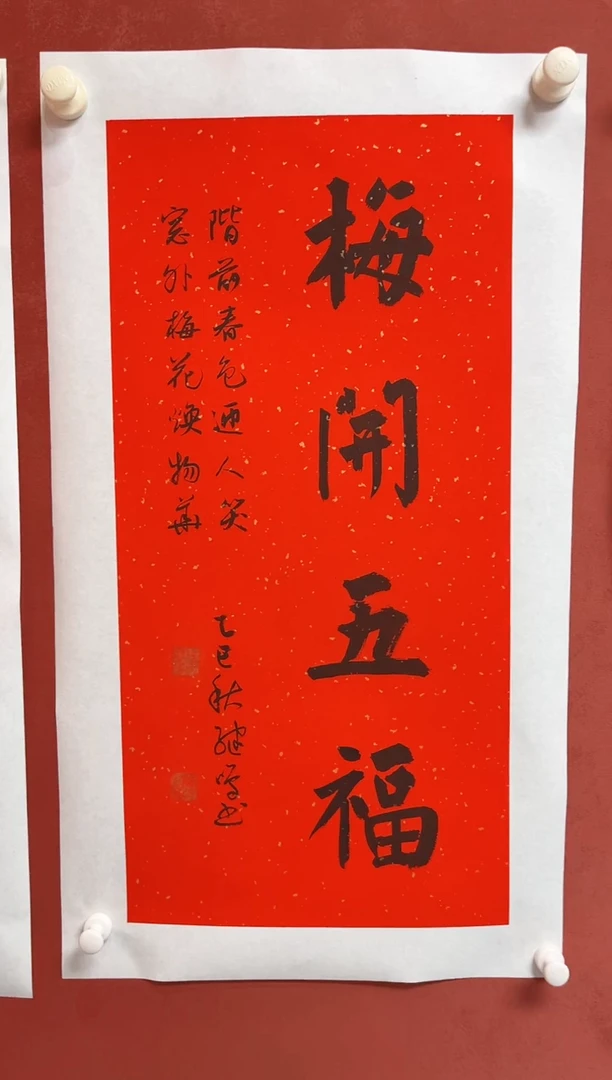 梅開五福
階前春色迎人笑
窓外梅花煥物華
乙巳秋继学书